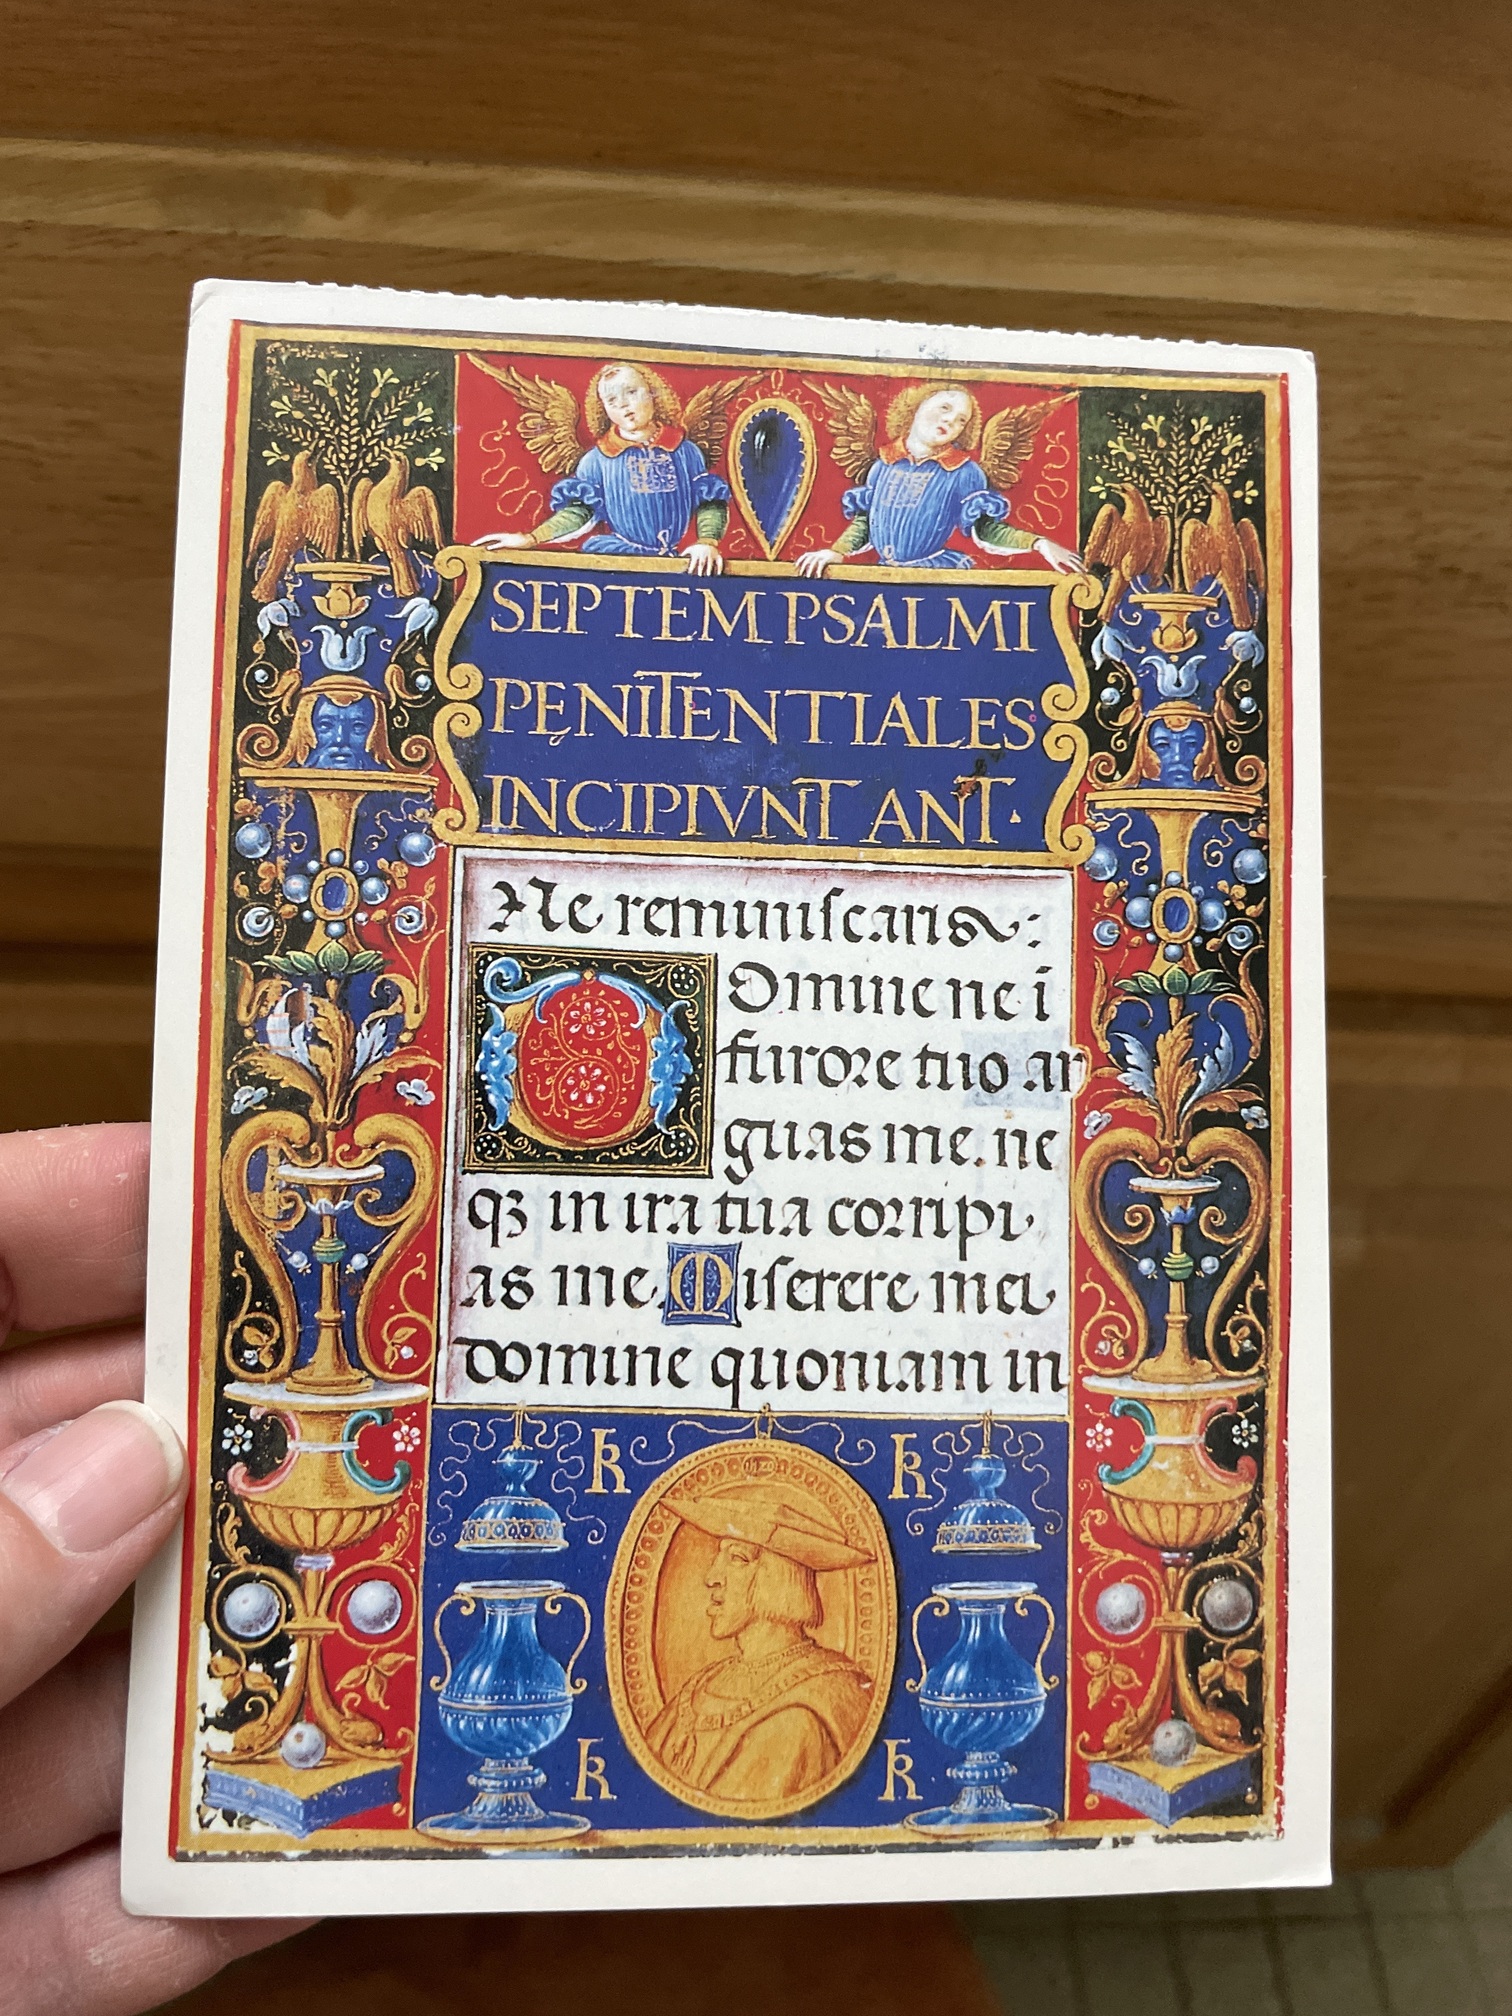 SEPTEM PSALMI
PĘNITENTIALES
INCIPIVNT ANT·
Ne reminiſcaris:
Domine ne ī
furore tuo ar
guas me. ne
qꝫ in ira tua corripi
as me. Miſerere mei
domine quoniam in
k k
k k